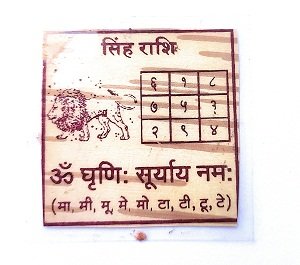 सिंह राशि
६ १ ८
७ ५ ३
२ ९ ४
ॐ घृणिः सूर्याय नमः
(मा, मी, मू, मे, मो, टा, टी, टू, टे)